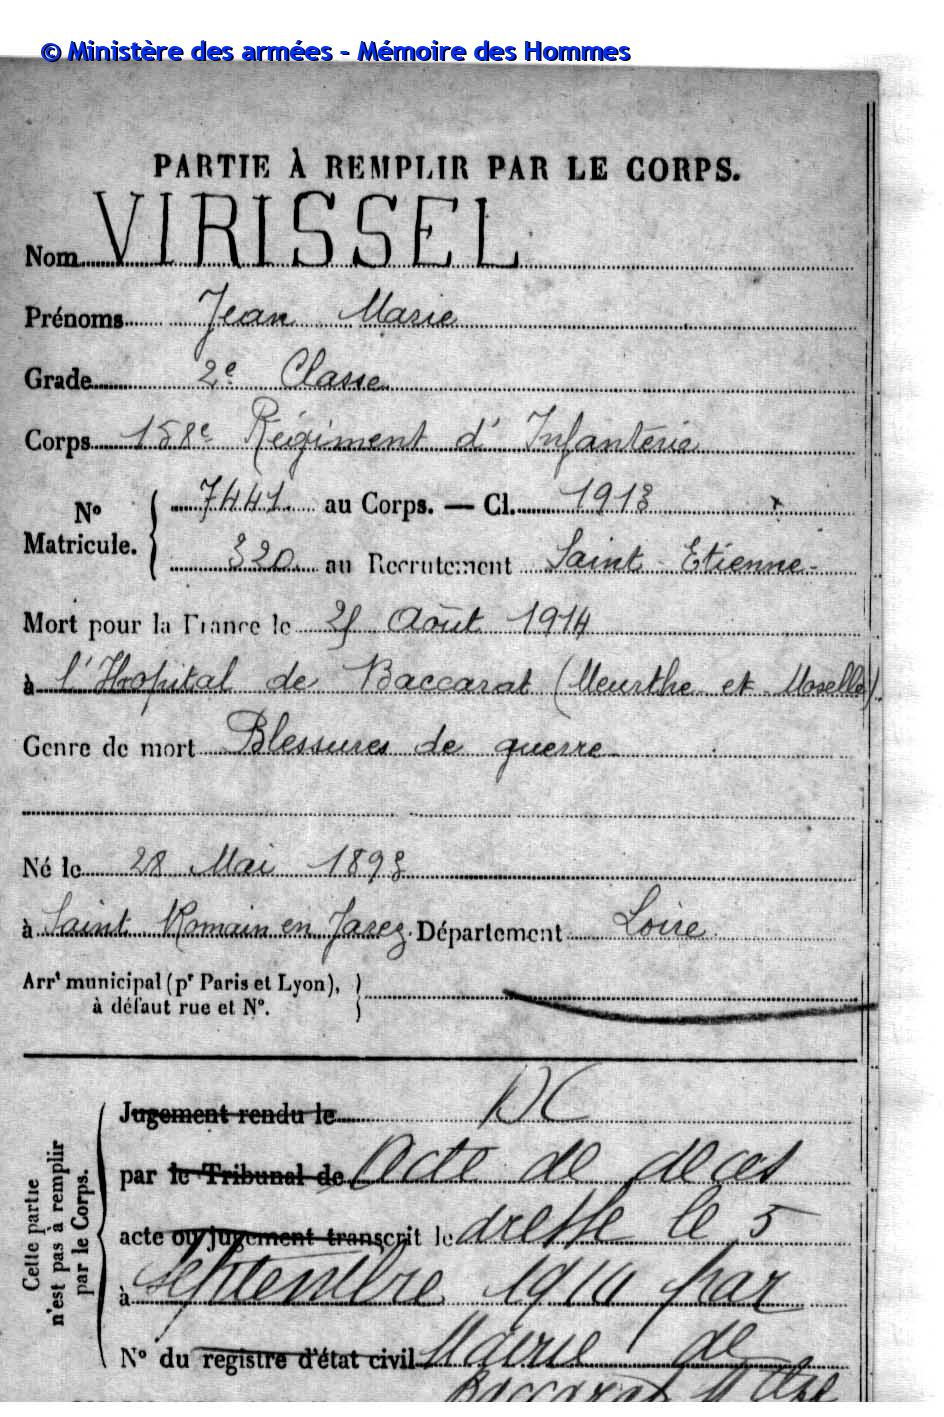 © Ministère des armées - Mémoire des Hommes
PARTIE À REMPLIR PAR LE CORPS.
Nom VIRISSEL
Prénoms Jean Marie
Grade 2e Classe
Corps 158e Régiment d'Infanterie
No Matricule. { 7441 au Corps. — Cl. 1913
320 au Recrutement Saint-Etienne
Mort pour la France le 25 Août 1914
à l'Hopital de Baccarat (Meurthe et Moselle)
Genre de mort Blessures de guerre
Né le 28 Mai 1893
à Saint Romain en Jarez Département Loire
Arrt municipal (pr Paris et Lyon),
à défaut rue et No.
Cette partie
n'est pas à remplir
par le Corps.
Jugement rendu le
par le Tribunal de Acte de deces
acte ou jugement transcrit le dresse le 5
à Septembre 1914 par
No du registre d'état civil Mairie de
Baccarat